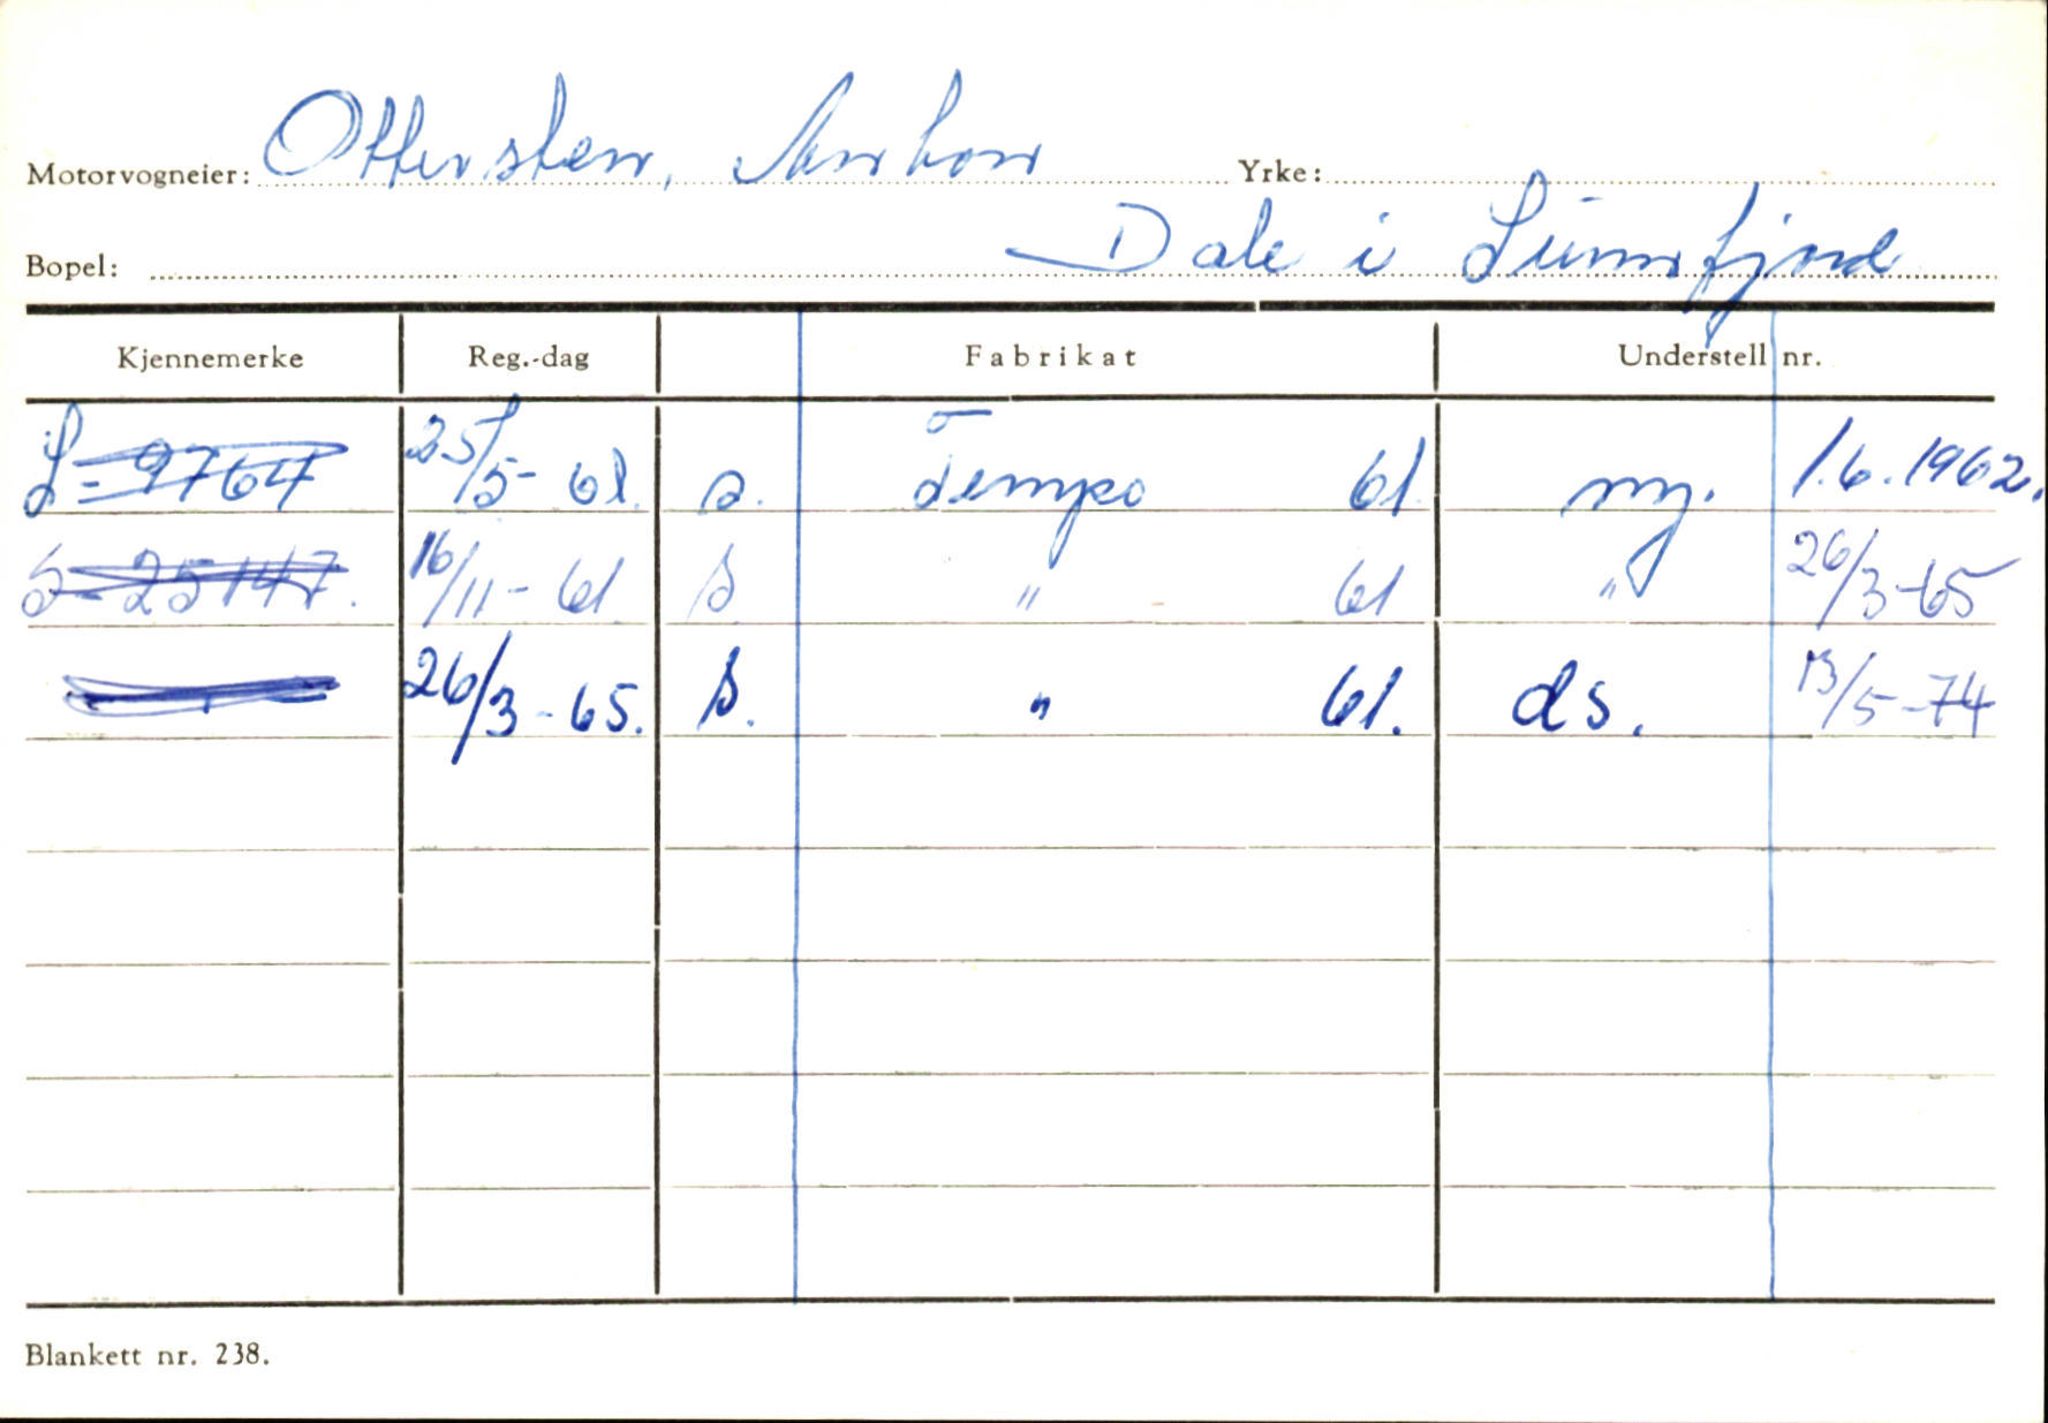 Motorvogneier: Ottersten, Anton Yrke:
Bopel: Dale i Sunnfjord
Kjennemerke Reg.-dag Fabrikat Understell nr.
S-9764 25/5-61. s. Tempo 61 ny. 1.6.1962.
S-25147. 16/11-61 s " 61 " 26/3-65
26/3-65. s. " 61. ds. 13/5-74
Blankett nr. 238.